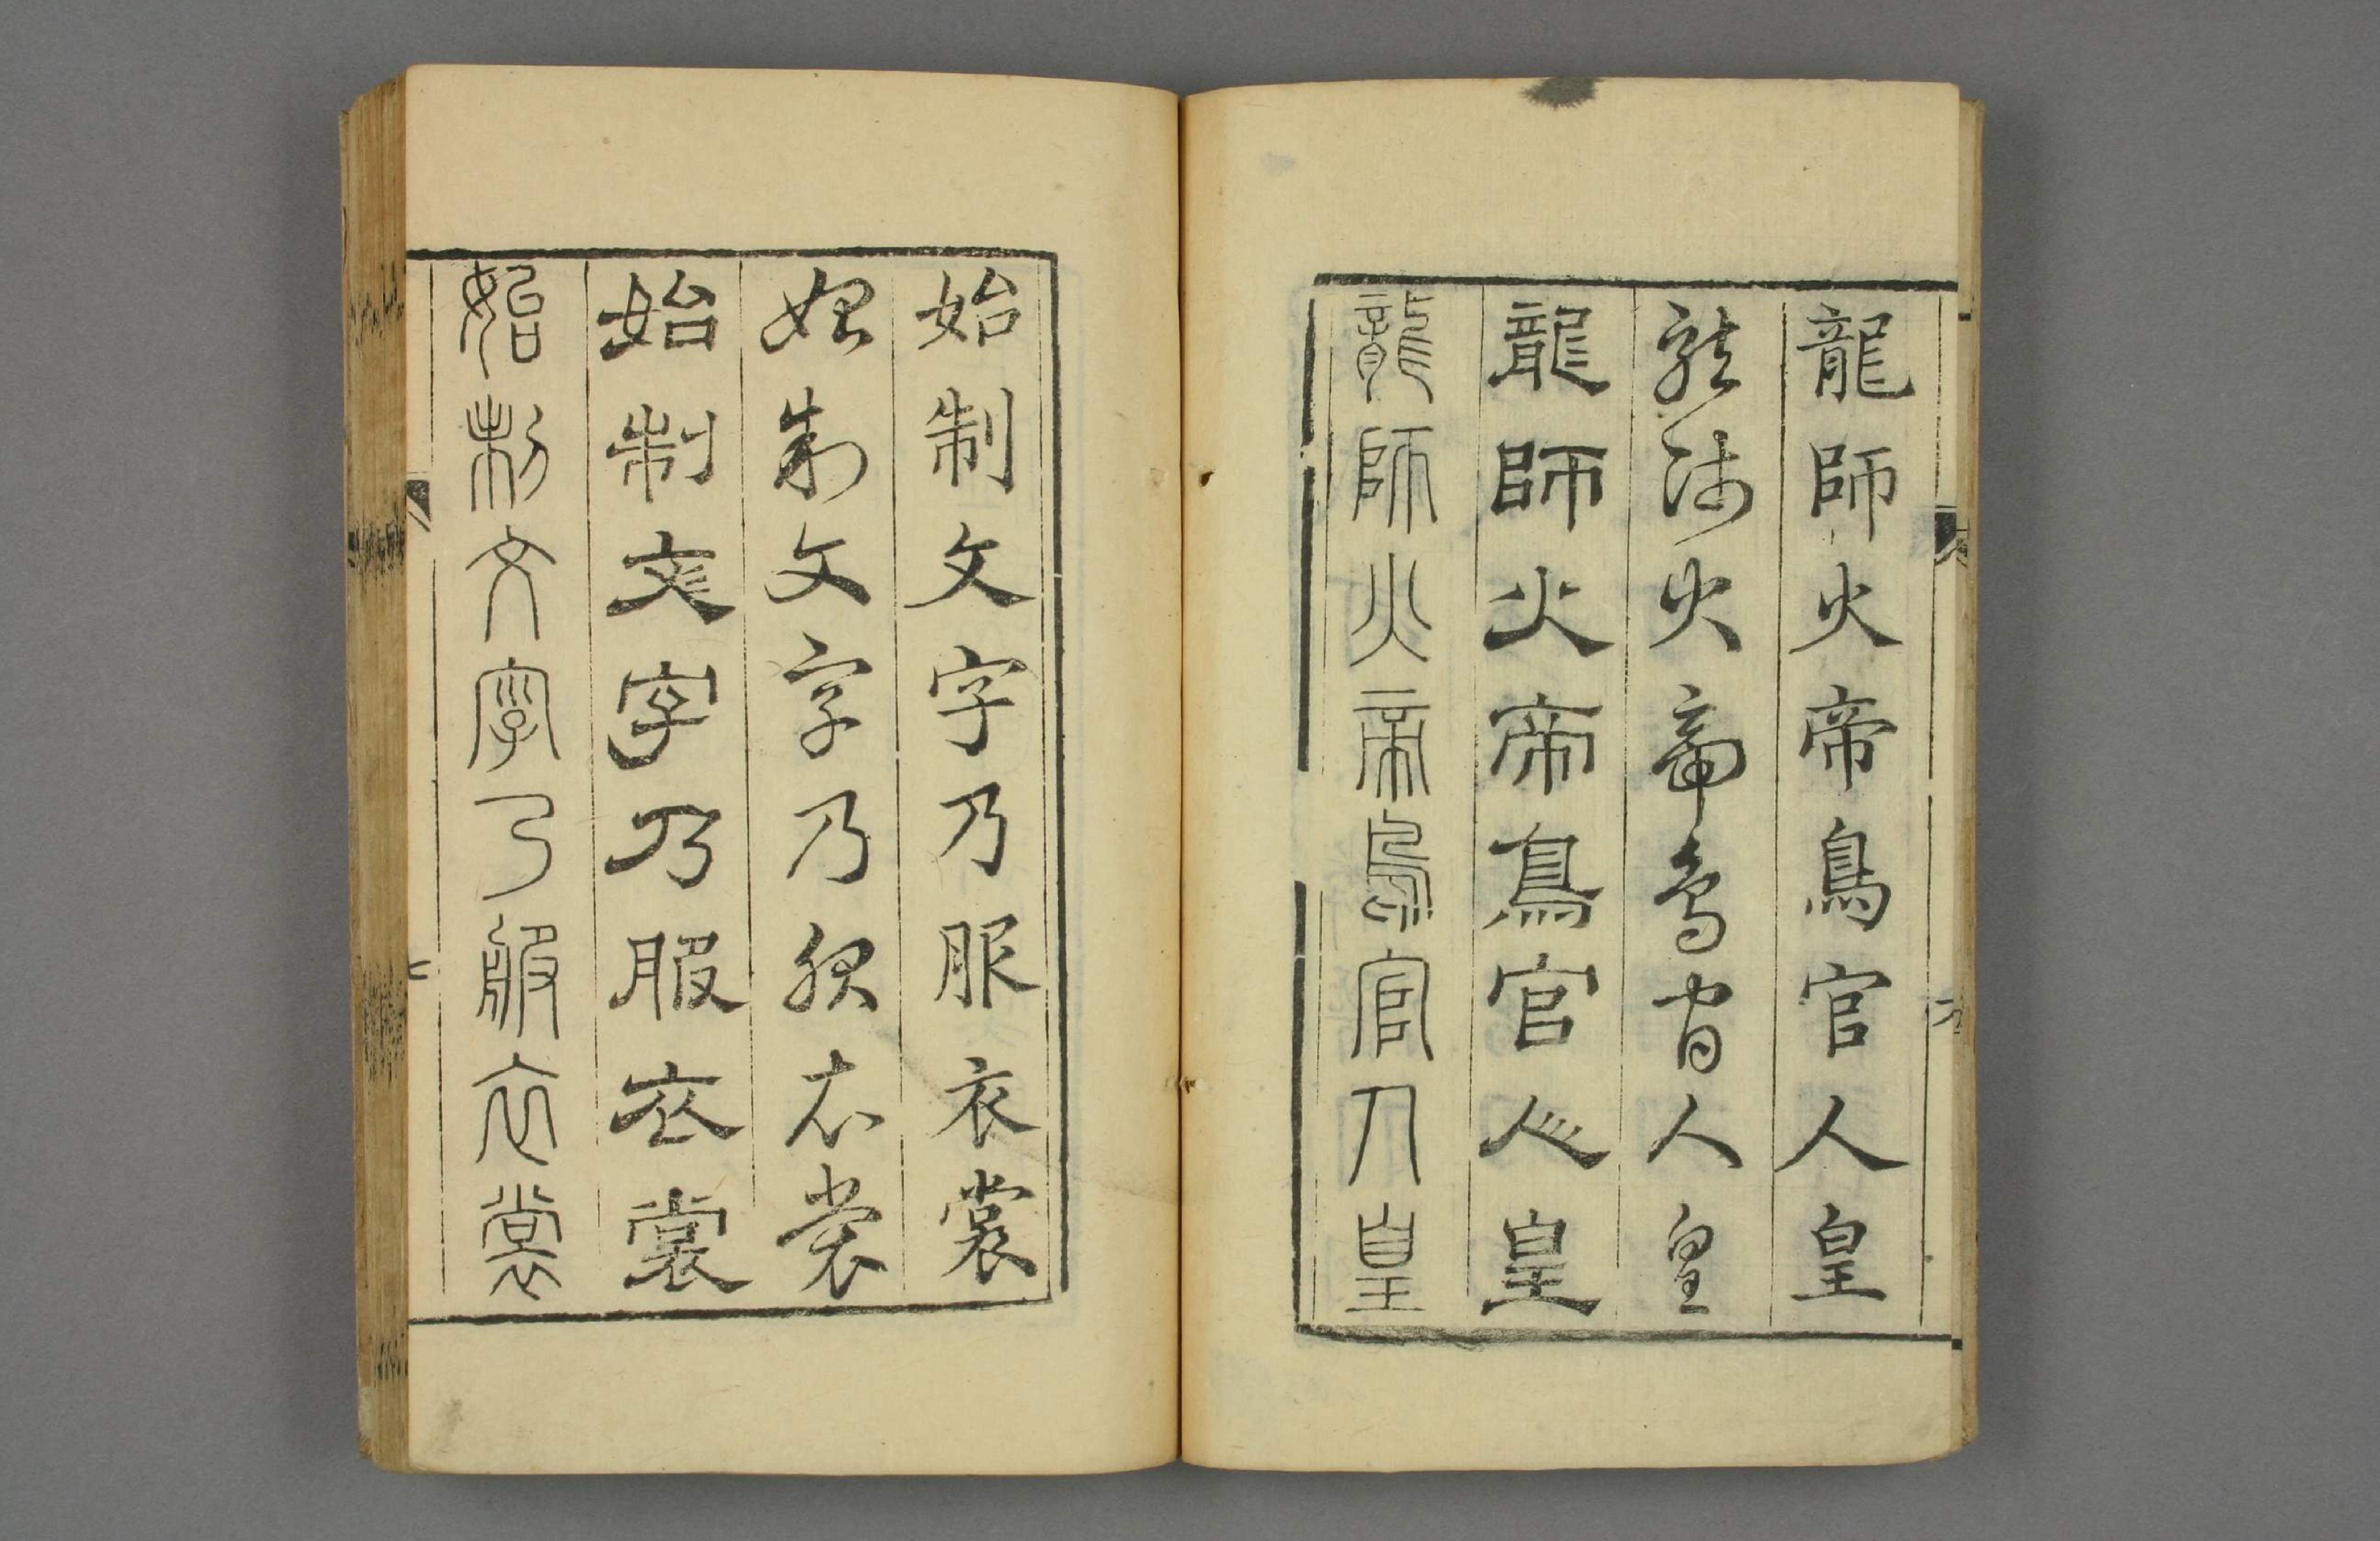 龍師火帝鳥官人皇
龍師火帝鳥官人皇
龍師火帝鳥官人皇
龍師火帝鳥官人皇
始制文字乃服衣裳
始制文字乃服衣裳
始制文字乃服衣裳
始制文字乃服衣裳